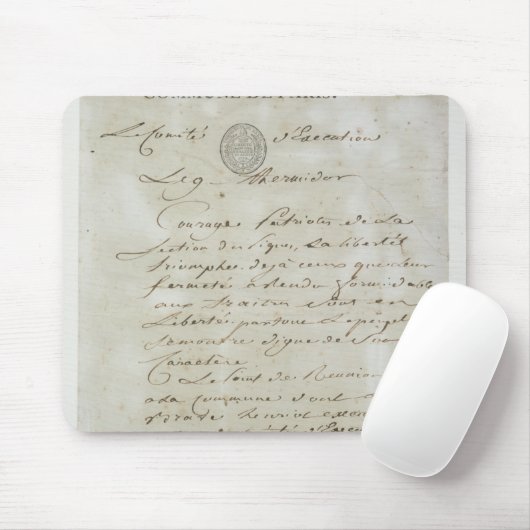 COMMUNE DE PARIS.
Le Comité d'Execution
Le 9 thermidor
Courage Patriotes de la
Section des Piques, La liberté
triomphe. deja ceux que leur
fermeté a Rendu formidable
aux traitres sont en
Liberté. partout Le peuple
se montre digne de Son
Caractere
Le Point de Reunion
a La commune dont
henriot
d'Execu